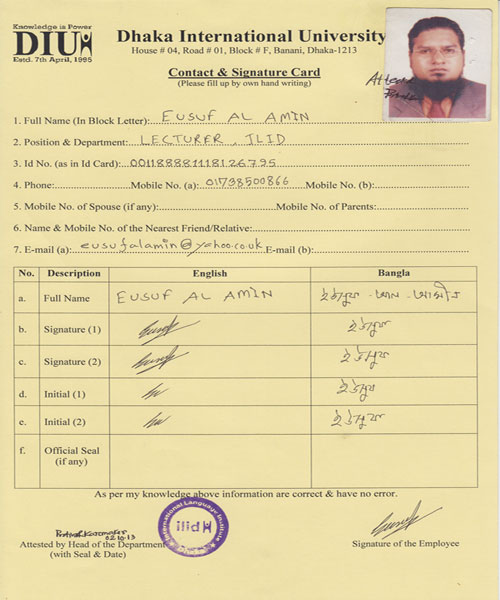 Knowledge is Power
DIU
Estd. 7th April, 1995
Dhaka International University
House # 04, Road # 01, Block # F, Banani, Dhaka-1213
Contact & Signature Card
(Please fill up by own hand writing)
1. Full Name (In Block Letter): EUSUF AL AMIN
2. Position & Department: LECTURER, ILID
3. Id No. (as in Id Card): 001188881118126795
4. Phone: Mobile No. (a): 01738500866 Mobile No. (b):
5. Mobile No. of Spouse (if any): Mobile No. of Parents:
6. Name & Mobile No. of the Nearest Friend/Relative:
7. E-mail (a): eusufalamin@yahoo.co.uk E-mail (b):
No. Description English Bangla
a. Full Name EUSUF AL AMIN ইউসুফ - আল - আমীন
b. Signature (1) ইউসুফ
c. Signature (2) ইউসুফ
d. Initial (1) ইউসুফ
e. Initial (2) ইউসুফ
f. Official Seal
(if any)
As per my knowledge above information are correct & have no error.
International Language Institute
ilid
02.10.13
Attested by Head of the Department
(with Seal & Date)
Signature of the Employee